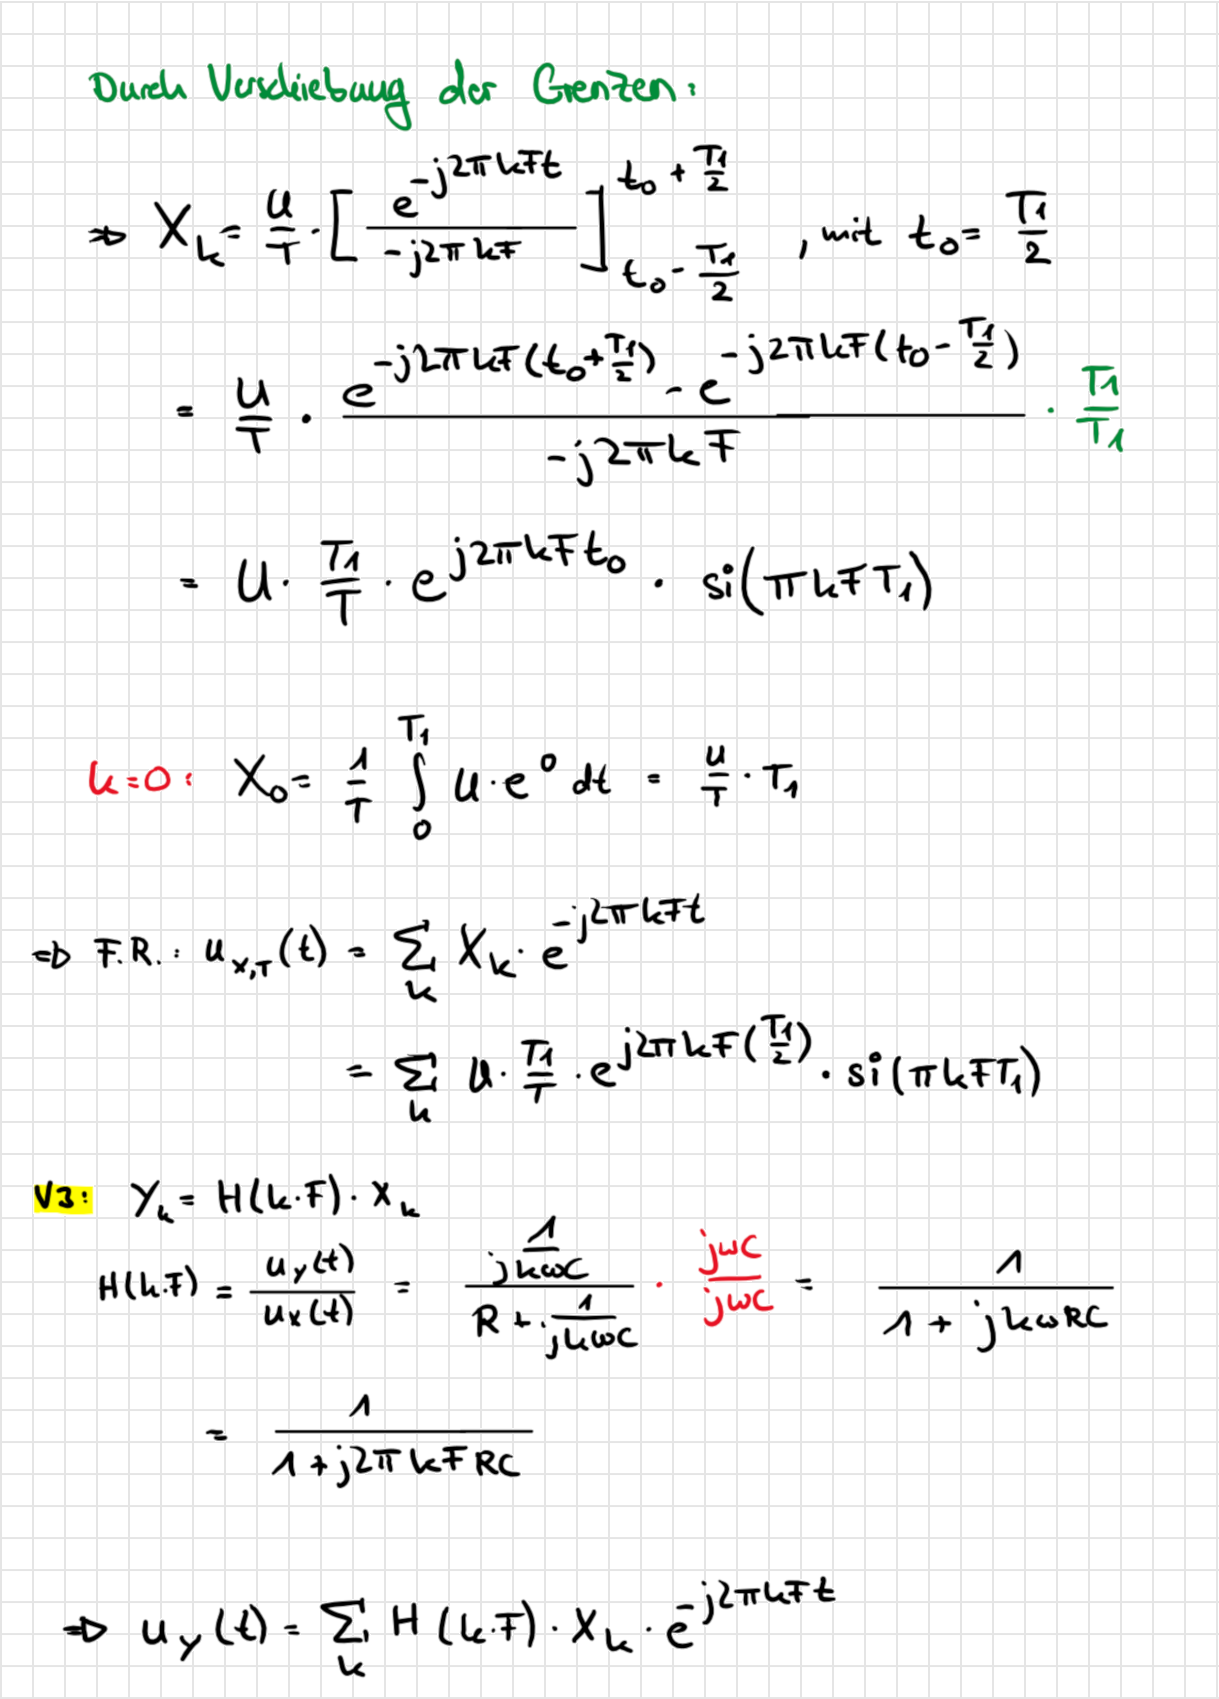 Durch Verschiebung der Grenzen:
⇒ X_k = U/T · [ e^{-j2πkFt} / (-j2πkF) ]_{t_0 - T_1/2}^{t_0 + T_1/2} , mit t_0 = T_1/2
= U/T · (e^{-j2πkF(t_0 + T_1/2)} - e^{-j2πkF(t_0 - T_1/2)}) / (-j2πkF) · T_1/T_1
= U · T_1/T · e^{j2πkFt_0} · si(πkFT_1)
k=0: X_0 = 1/T ∫_0^{T_1} U · e^0 dt = U/T · T_1
⇒ F.R.: u_{x,T}(t) = Σ_k X_k · e^{-j2πkFt}
= Σ_k U · T_1/T · e^{j2πkF(T_1/2)} · si(πkFT_1)
V3: Y_k = H(k·F) · X_k
H(k·F) = u_y(t)/u_x(t) = (1/(jkωC)) / (R + 1/(jkωC)) · jωC/jωC = 1/(1 + jkωRC)
= 1/(1 + j2πkFRC)
⇒ u_y(t) = Σ_k H(k·F) · X_k · e^{-j2πkFt}